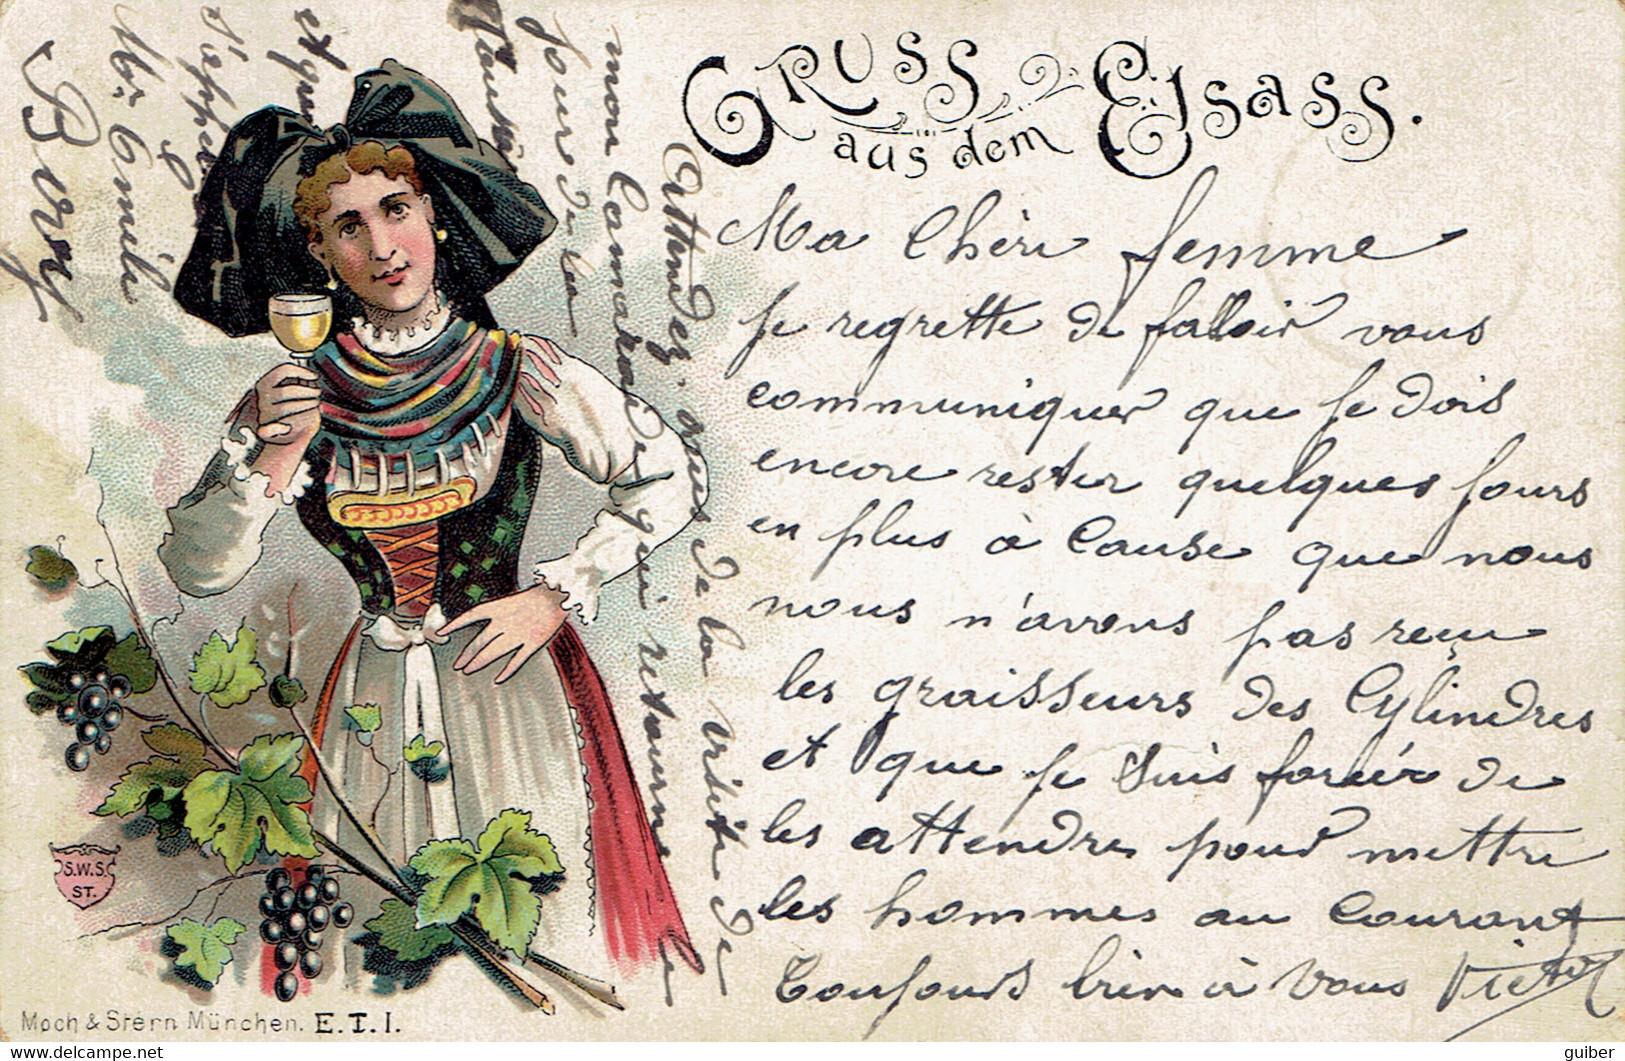 GRUSS aus dem Elsass.
Ma Chéri femme
je regrette de falloir vous
communiquer que je dois
encore rester quelques jours
en plus à Cause que nous
nous n'avons pas reçu
les graisseurs des Cylindres
et que je suis forcér de
les attendre pour mettre
les hommes au Courant
Toujours bien à vous Victor
Attendez. vous de la visite de
mon Camarade qui retourne le
jour de la
et qui
s'appelle
Mr Emile
Burg
S.W.S.
ST.
Moch & Stern München. E.T.I.
guiber